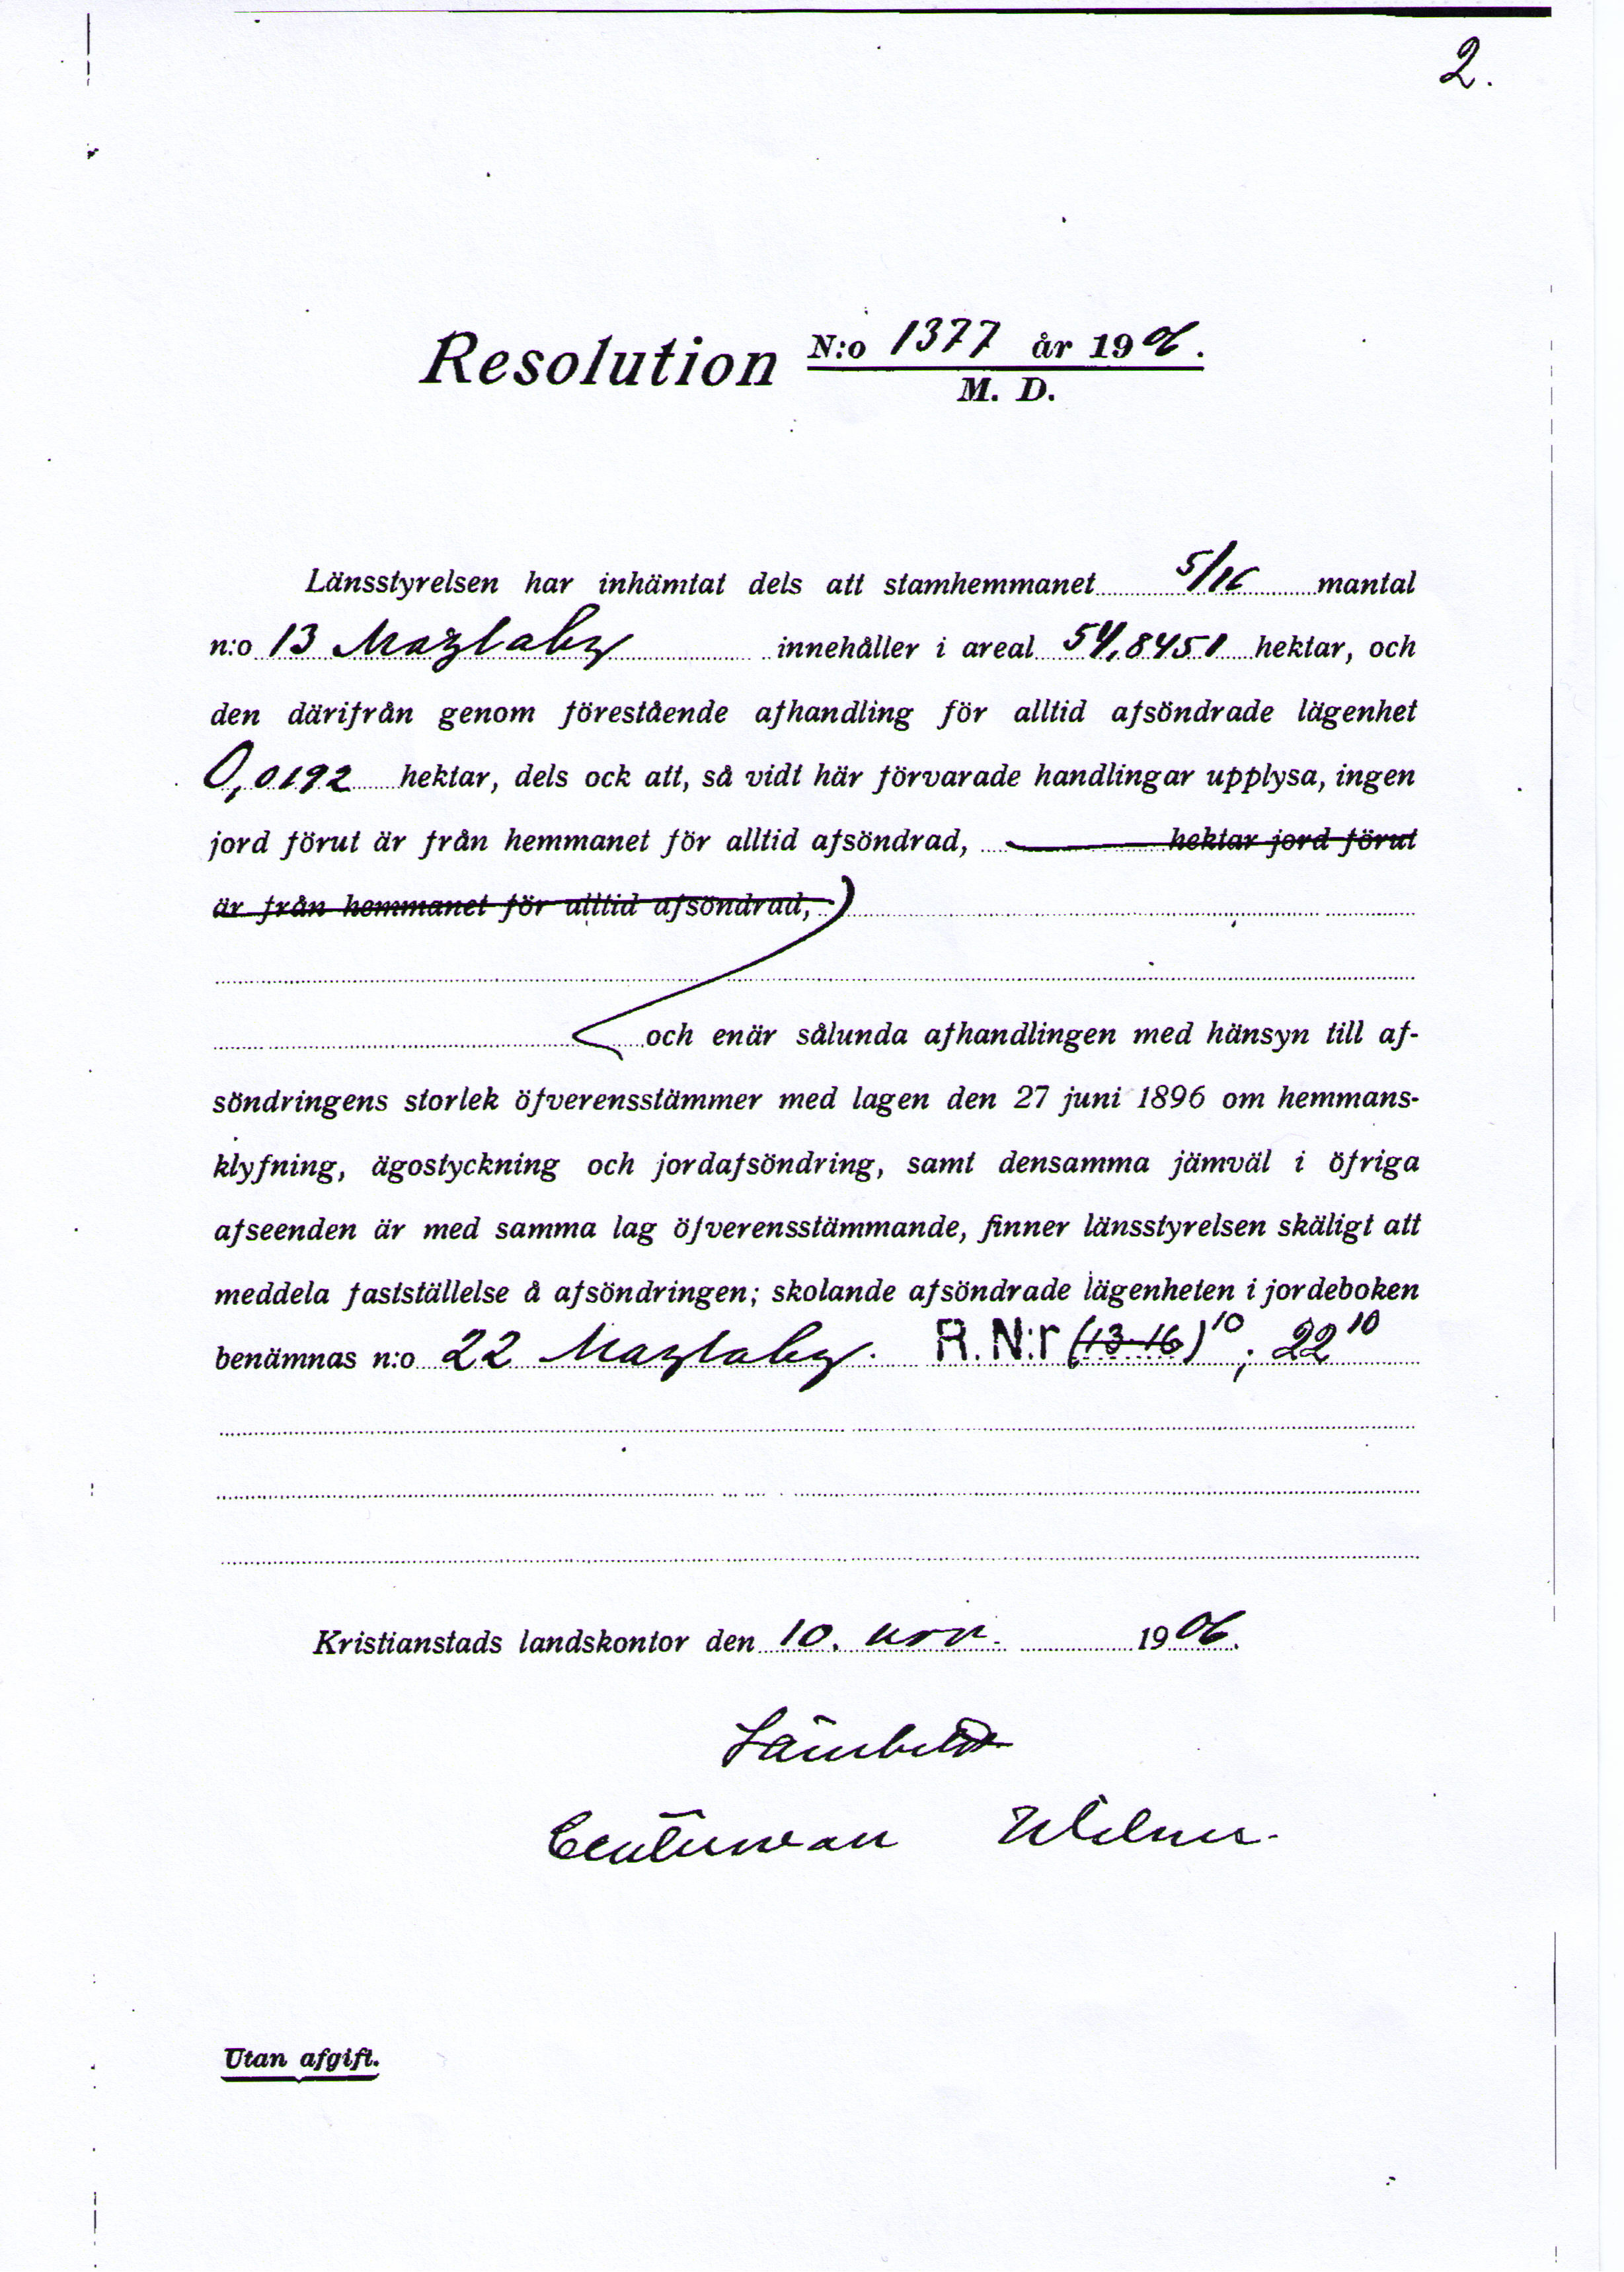 2.
Resolution N:o 1377 år 1906.
M. D.
Länsstyrelsen har inhämtat dels att stamhemmanet 5/16 mantal
n:o 13 Maglaby innehåller i areal 54,8451 hektar, och
den därifrån genom förestående afhandling för alltid afsöndrade lägenhet
0,0192 hektar, dels ock att, så vidt här förvarade handlingar upplysa, ingen
jord förut är från hemmanet för alltid afsöndrad, hektar jord förut
är från hemmanet för alltid afsöndrad,
och enär sålunda afhandlingen med hänsyn till af-
söndringens storlek öfverensstämmer med lagen den 27 juni 1896 om hemmans-
klyfning, ägostyckning och jordafsöndring, samt densamma jämväl i öfriga
afseenden är med samma lag öfverensstämmande, finner länsstyrelsen skäligt att
meddela fastställelse å afsöndringen; skolande afsöndrade lägenheten i jordeboken
benämnas n:o 22 Maglaby. R. N:r (13-16)10; 22 10
Kristianstads landskontor den 10. nov. 1906.
Utan afgift.